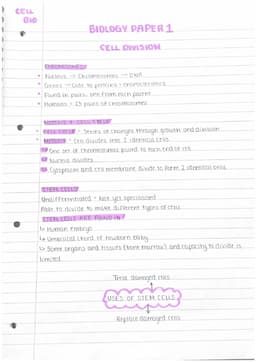 CELL
BIO
BIOLOGY PAPER 1
CELL DIVISION
CHROMOSOMES
Nucleus -> Chromosomes -> DNA
Genes -> Code to proteins - characteristics
Found in pairs, one from each parent
Humans = 23 pairs of chromosomes
MITOSIS + CELL CYCLE
CELL CYCLE - Series of changes through growth and division
MITOSIS - Cell divides into 2 identical cells
One set of chromosomes pulled to each end of cell
Nucleus divides
Cytoplasm and cell membrane divide to form 2 identical cells
STEM CELLS
Undifferentiated - Not yet specialised
Able to divide to make different types of cells
STEM CELLS ARE FOUND IN
↳ Human Embryo
↳ Umbilical chord of newborn baby
↳ Some organs and tissues (bone marrow) and capacity to divide is
limited
Treat damaged cells
USES OF STEM CELLS
Replace damaged cells